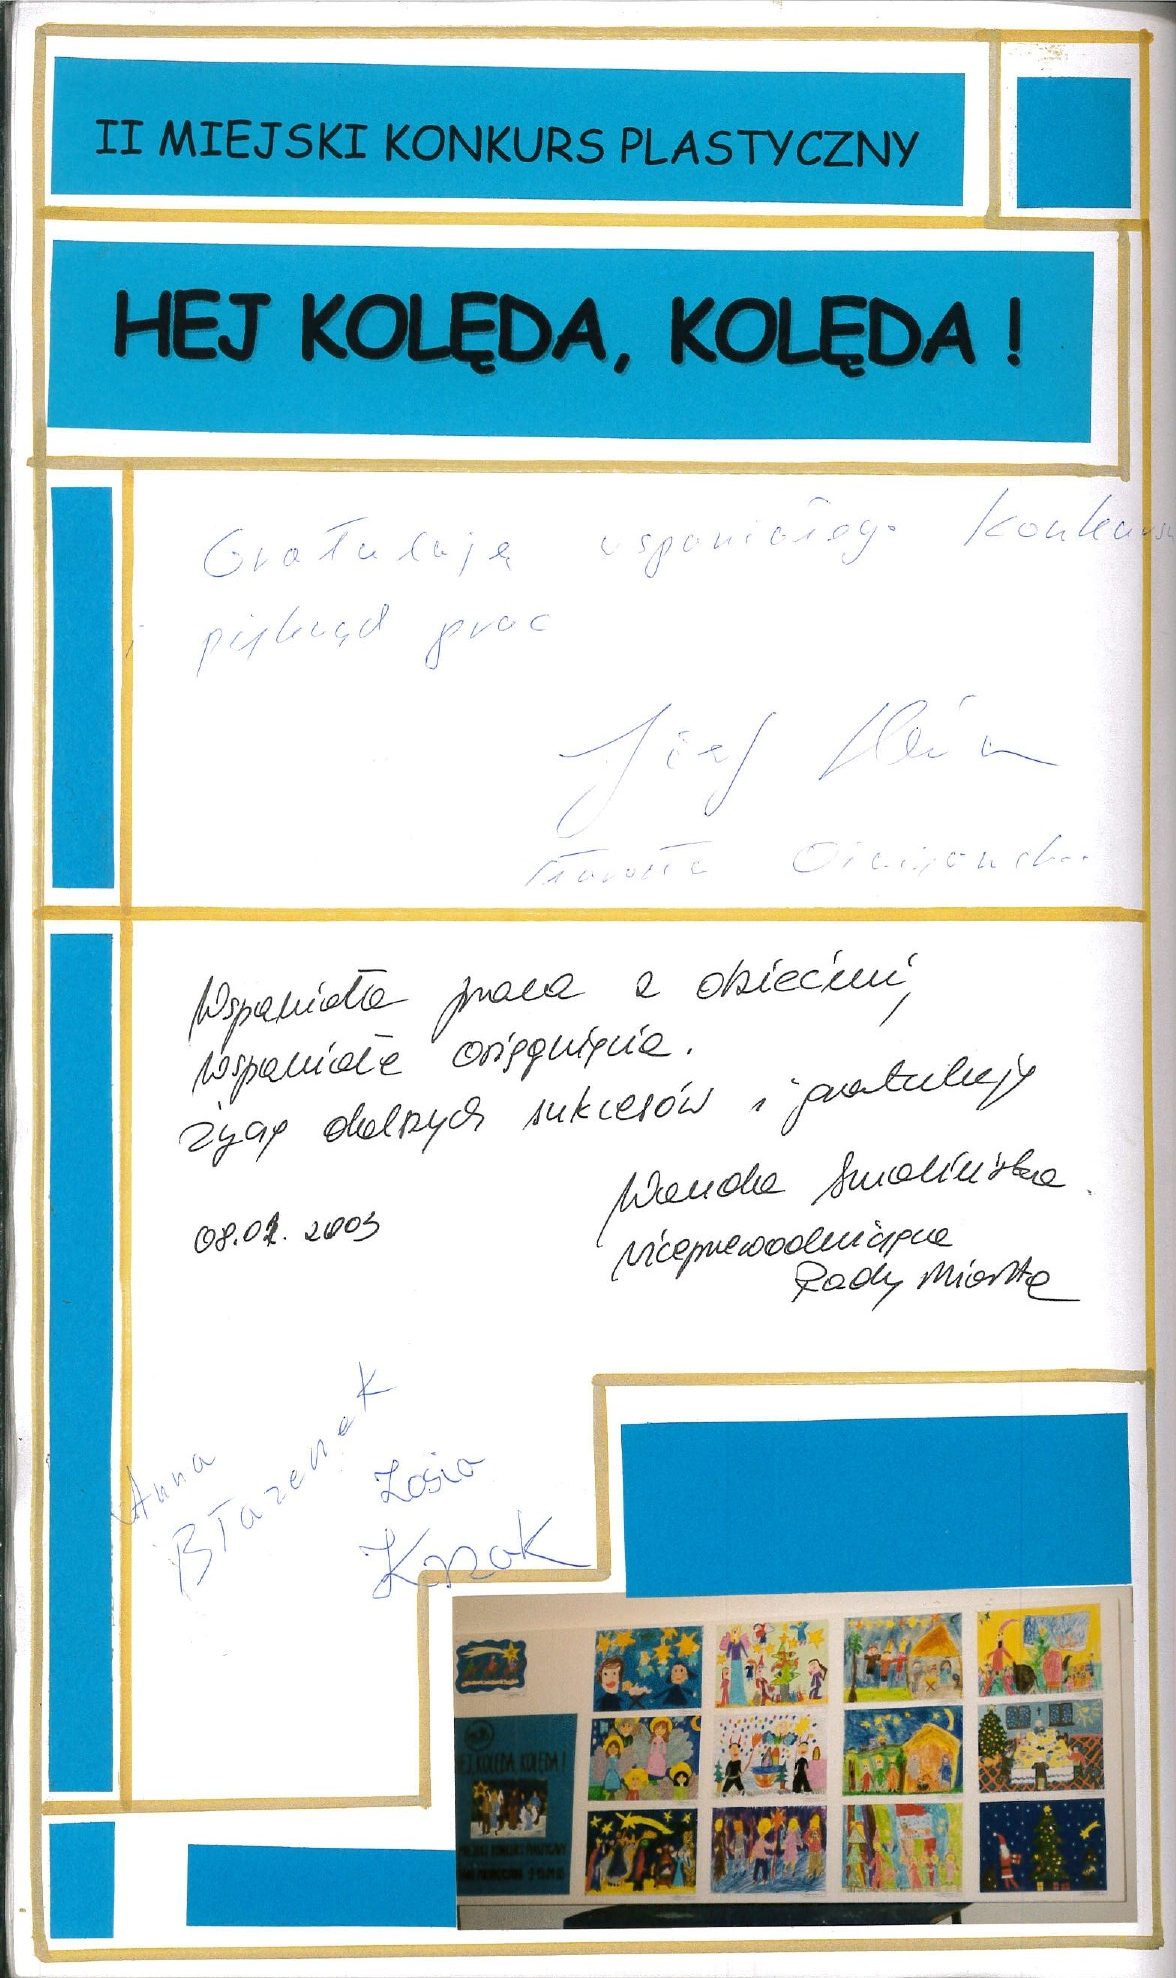 II MIEJSKI KONKURS PLASTYCZNY
HEJ KOLĘDA, KOLĘDA !
Gratuluję wspaniałego Konkursu
i pięknych prac
Józef
Starosta
Wspaniała praca z dziećmi,
wspaniałe osiągnięcia.
Życzę dalszych sukcesów i gratuluję
Wanda Smolińska
08.01.2003
wiceprzewodnicząca
Rady Miasta
Anna
Błazenek
Zosia
Kozak
HEJ KOLĘDA, KOLĘDA !
MIEJSKI KONKURS PLASTYCZNY